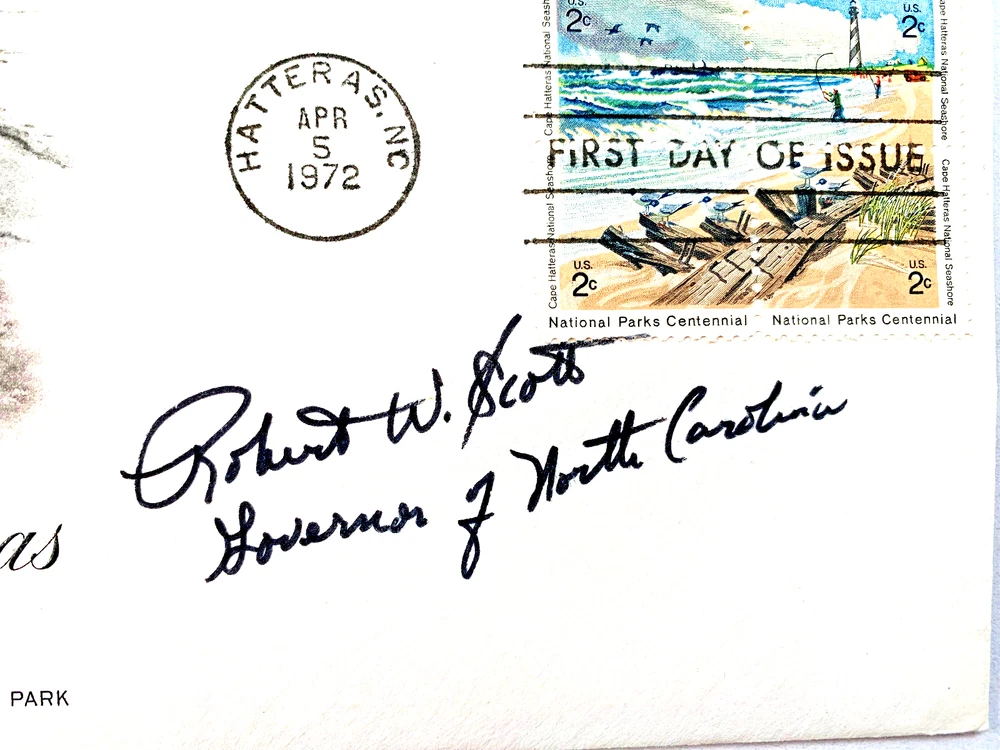 U.S.
2c
U.S.
2c
Cape Hatteras National Seashore
Cape Hatteras National Seashore
HATTERAS, NC
APR
5
1972
FIRST DAY OF ISSUE
Cape Hatteras National Seashore
Cape Hatteras National Seashore
U.S.
2c
U.S.
2c
National Parks Centennial
National Parks Centennial
Robert W. Scott
Governor of North Carolina
as
PARK